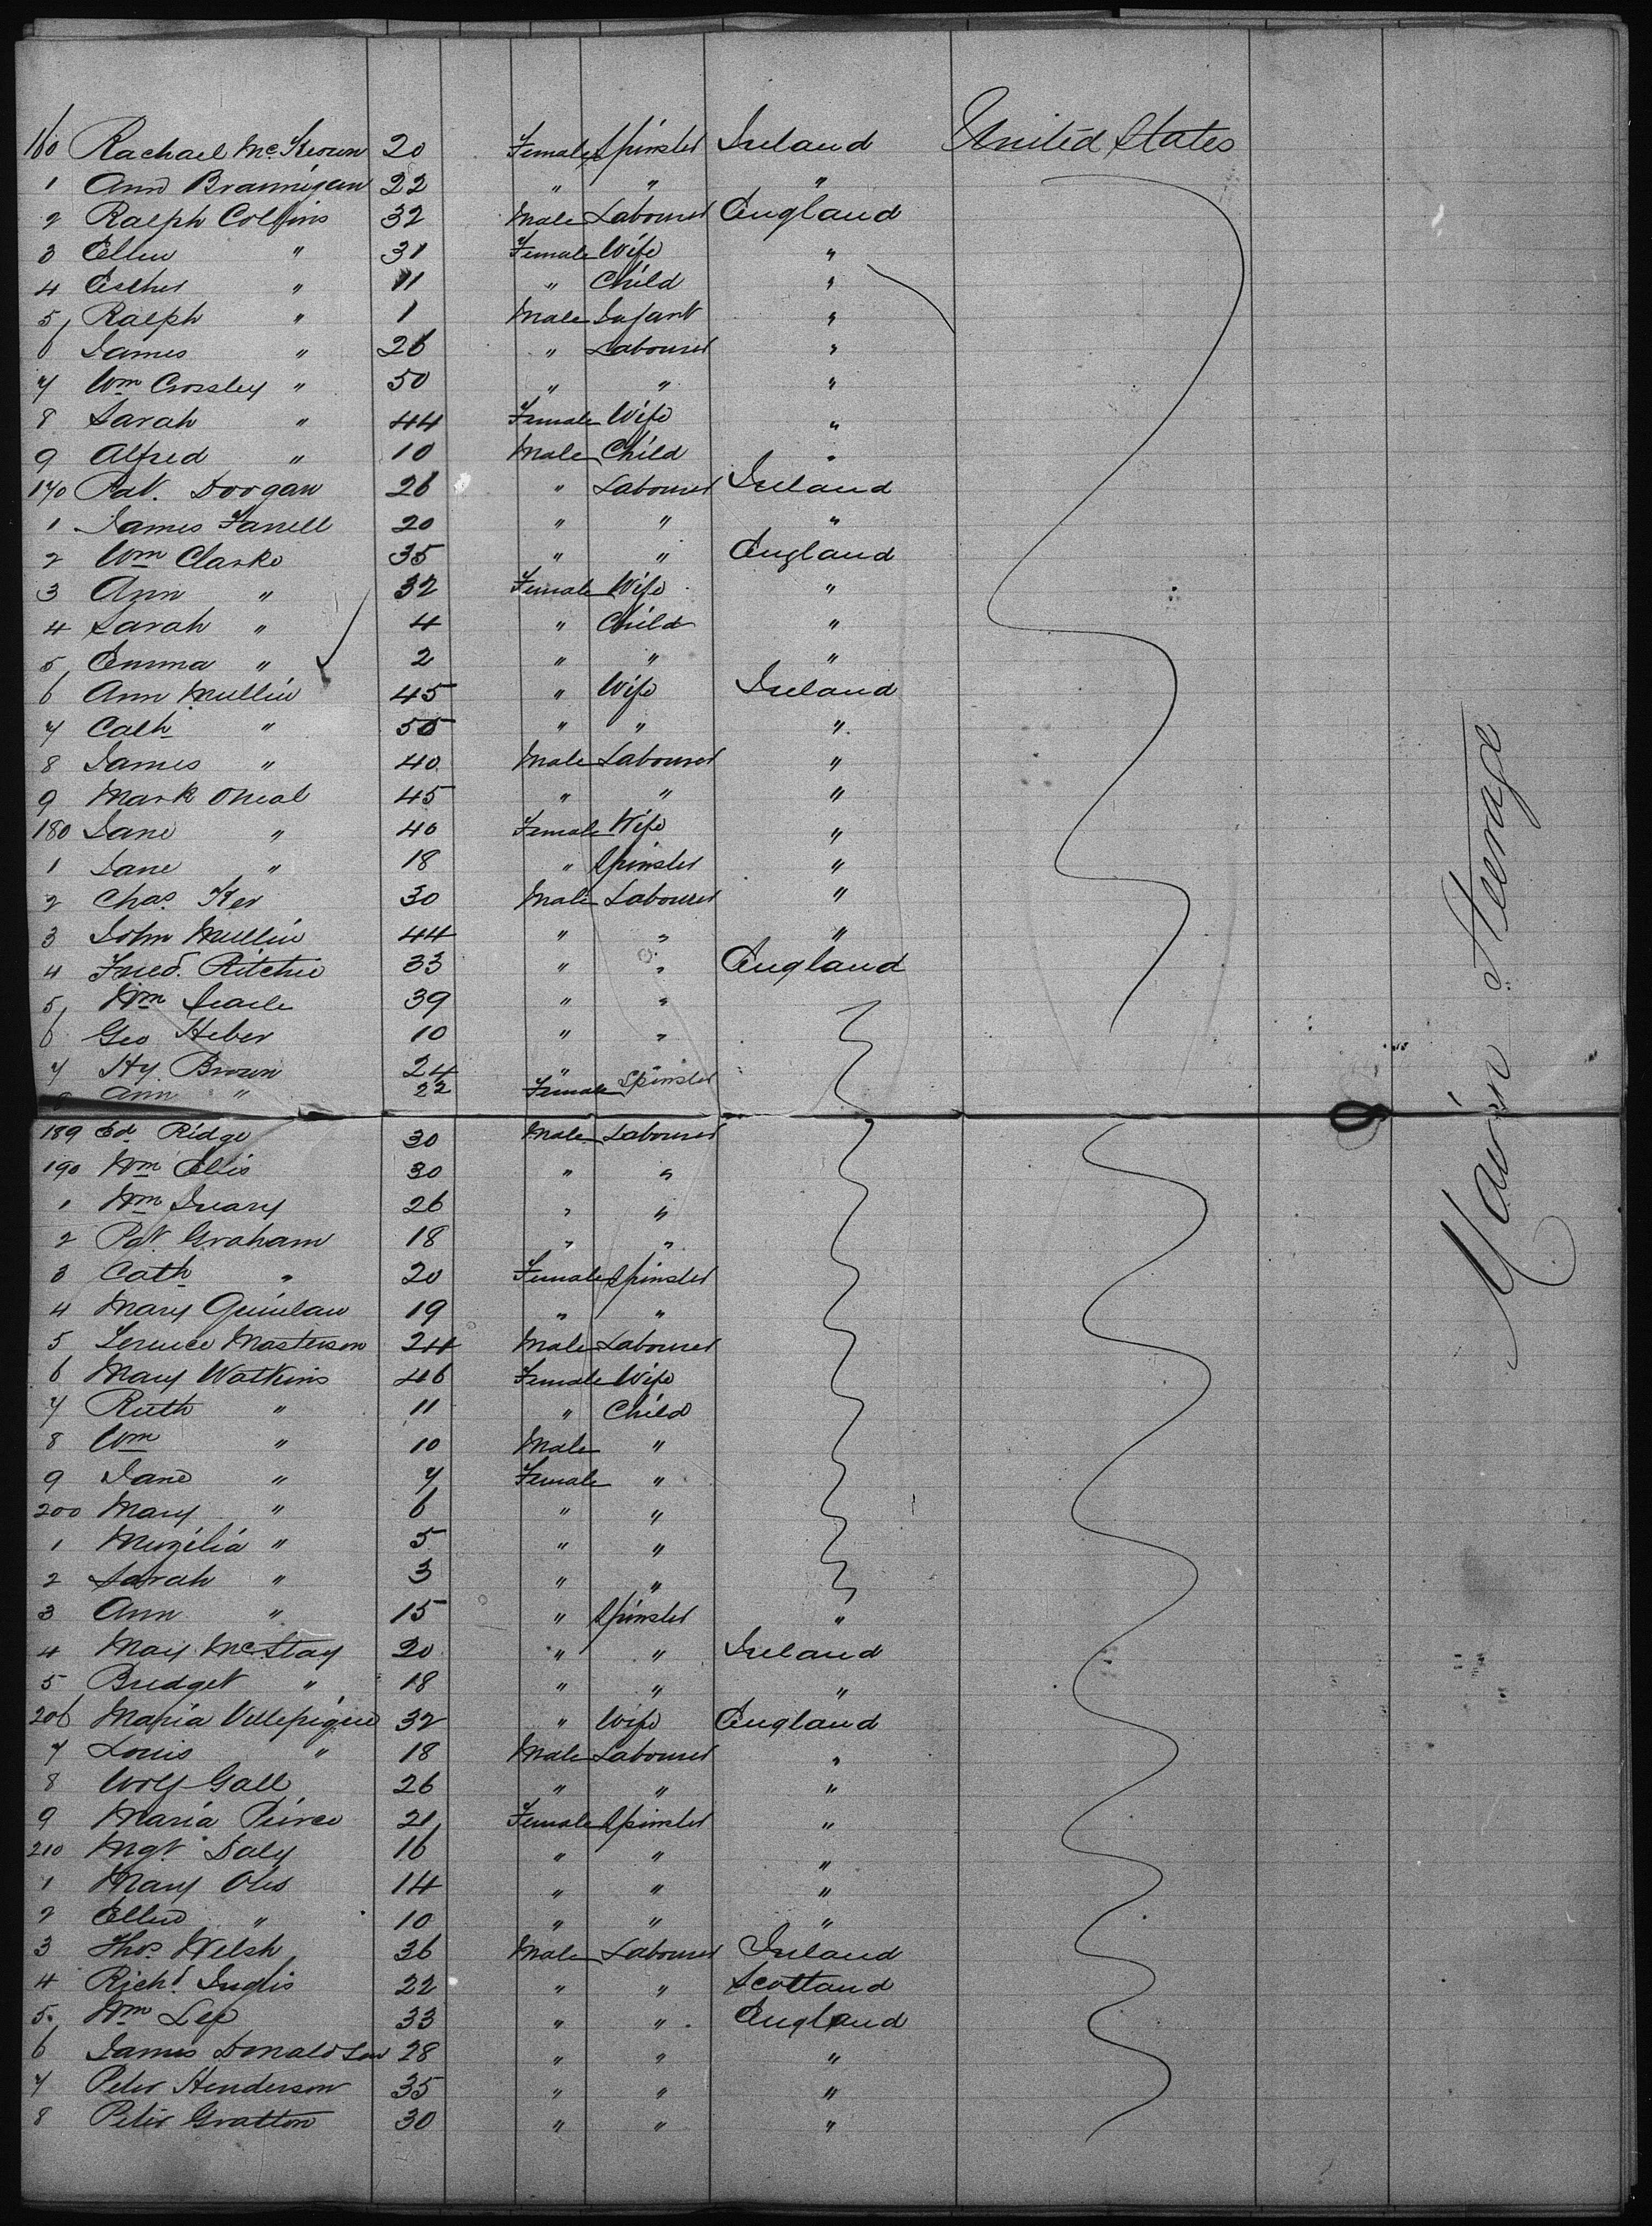 160 Rachael McKeown 20 Female Spinster Ireland United States
1 Ann Brannigan 22 " " "
2 Ralph Collins 32 Male Labourer England
3 Ellen " 31 Female Wife "
4 Esther " 11 " Child "
5 Ralph " 1 Male Infant "
6 James " 26 " Labourer "
7 Wm Crossley " 50 " " "
8 Sarah " 44 Female Wife "
9 Alfred " 10 Male Child "
170 Pat. Doogan 26 " Labourer Ireland
1 James Farrell 20 " " "
2 Wm Clarke 35 " " England
3 Ann " 32 Female Wife "
4 Sarah " 4 " Child "
5 Emma " 2 " " "
6 Ann Mullin 45 " Wife Ireland
7 Cath " 50 " " "
8 James " 40 Male Labourer "
9 Mark Oneal 45 " " "
180 Jane " 40 Female Wife "
1 Jane " 18 " Spinster "
2 Chas. Ker 30 Male Labourer "
3 John Mullin 44 " " "
4 Fred. Ritchie 33 " " England
5 Wm Searle 39 " "
6 Geo Heber 10 " "
7 Hy. Brown 24 "
8 Ann " 22 Female Spinster
189 Ed Ridge 30 Male Labourer
190 Wm Ellis 30 " "
1 Wm 26 " "
2 Pat Graham 18 " "
3 Cath " 20 Female Spinster
4 Mary Quinlan 19 " "
5 Terence Masterson 24 Male Labourer
6 Mary Watkins 46 Female Wife
7 Ruth " 11 " Child
8 Wm " 10 Male "
9 Jane " 7 Female "
200 Mary " 6 " "
1 " 5 " "
2 Sarah " 3 " "
3 Ann " 15 " Spinster "
4 May McStay 20 " " Ireland
5 Bridget " 18 " " "
206 Maria Villepigue 32 " Wife England
7 Louis " 18 Male Labourer "
8 Wolf Gall 26 " " "
9 Maria Peirce 21 Female Spinster "
210 Mgt Daly 16 " " "
1 Mary 14 " " "
2 Ellen " 10 " " "
3 Thos. Welsh 36 Male Labourer Ireland
4 Richd. Inglis 22 " " Scotland
5 Wm Lee 33 " " England
6 James Donaldson 28 " " "
7 Peter Henderson 35 " " "
8 Peter Gratton 30 " " "
Main Steerage